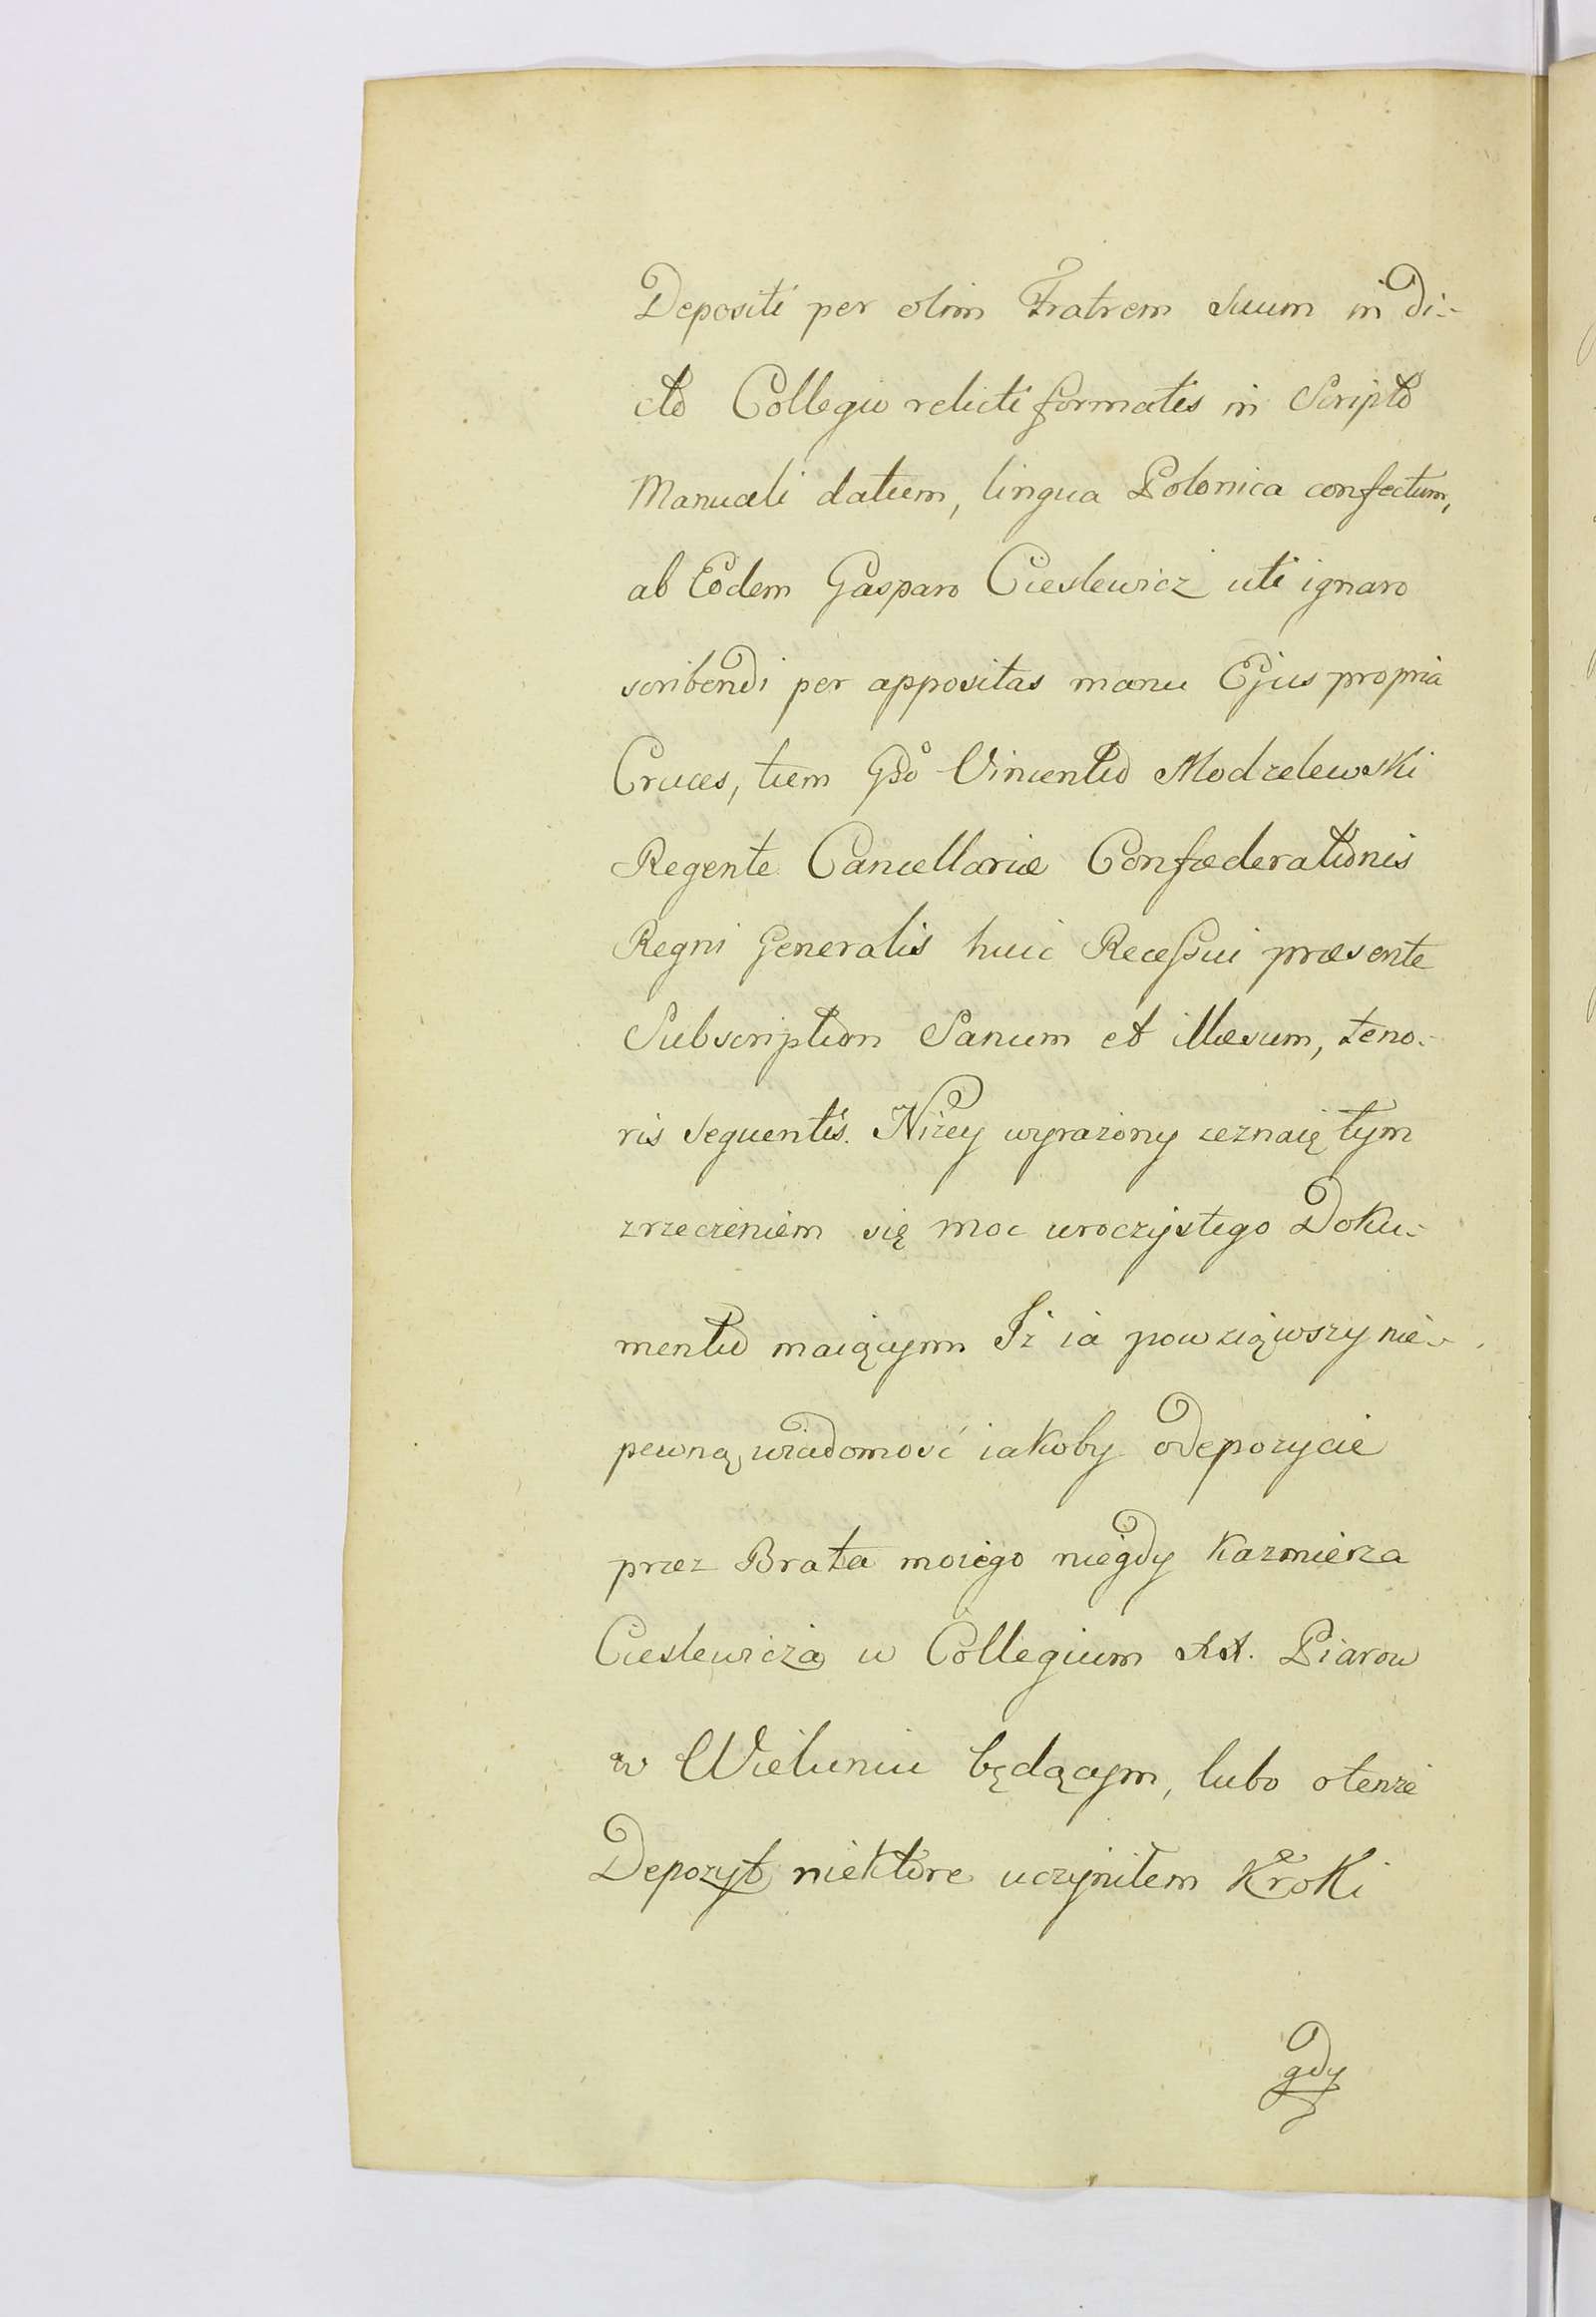 Depositi per olim Fratrem Suum in di-
cto Collegio relicti formatis in Scripto
Manuali datum, lingua Polonica confectum,
ab Eodem Gasparo Cieslewicz uti ignaro
scribendi per appositas manu Ejus propria
Cruces, tum Gso Vincentio Modzelewski
Regente Cancellariæ Confœderationis
Regni Generalis huic Recessui præsente
Subscription Sanum et illæsum, teno-
ris sequentis. Niżey wyrażony zeznaię tym
zrzeczeniem się moc uroczystego Doku-
mentu maiącym Iż ia powziąwszy nie-
pewną wiadomość iakoby o depozycie
przez Brata moiego niegdy Kazmierza
Cieslewicza w Collegium XX. Piarow
w Wieluniu będącym, lubo o tenże
Depozyt niektore uczyniłem Kroki
gdy